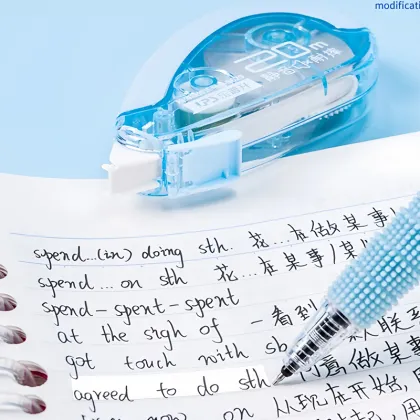 modificati
20m
spend...(in) doing sth. 花...在做某事/
spend...on sth 花...在某事/某
spend-spent-spent
at the sigh of 一看到
got touch with sb 联系
agreed to do sth 同意做某事
now on 从现在开始,